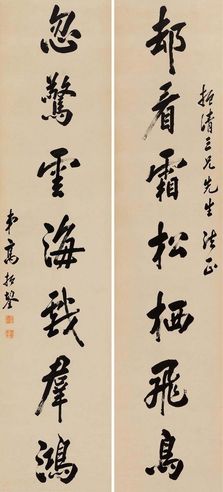 清三兄先生法正
都看霜松栖飛鳥
忽驚雲海戲羣鴻
弟高振霄